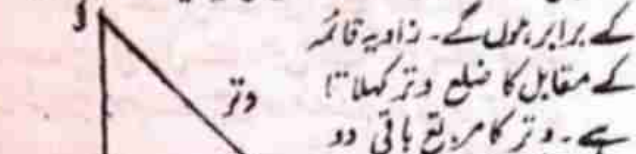 کے برابر ہوں گے۔ زاویہ قائمہ
کے مقابل کا ضلع وتر کہلاتا
ہے۔ وتر کا مربع باقی دو
وتر